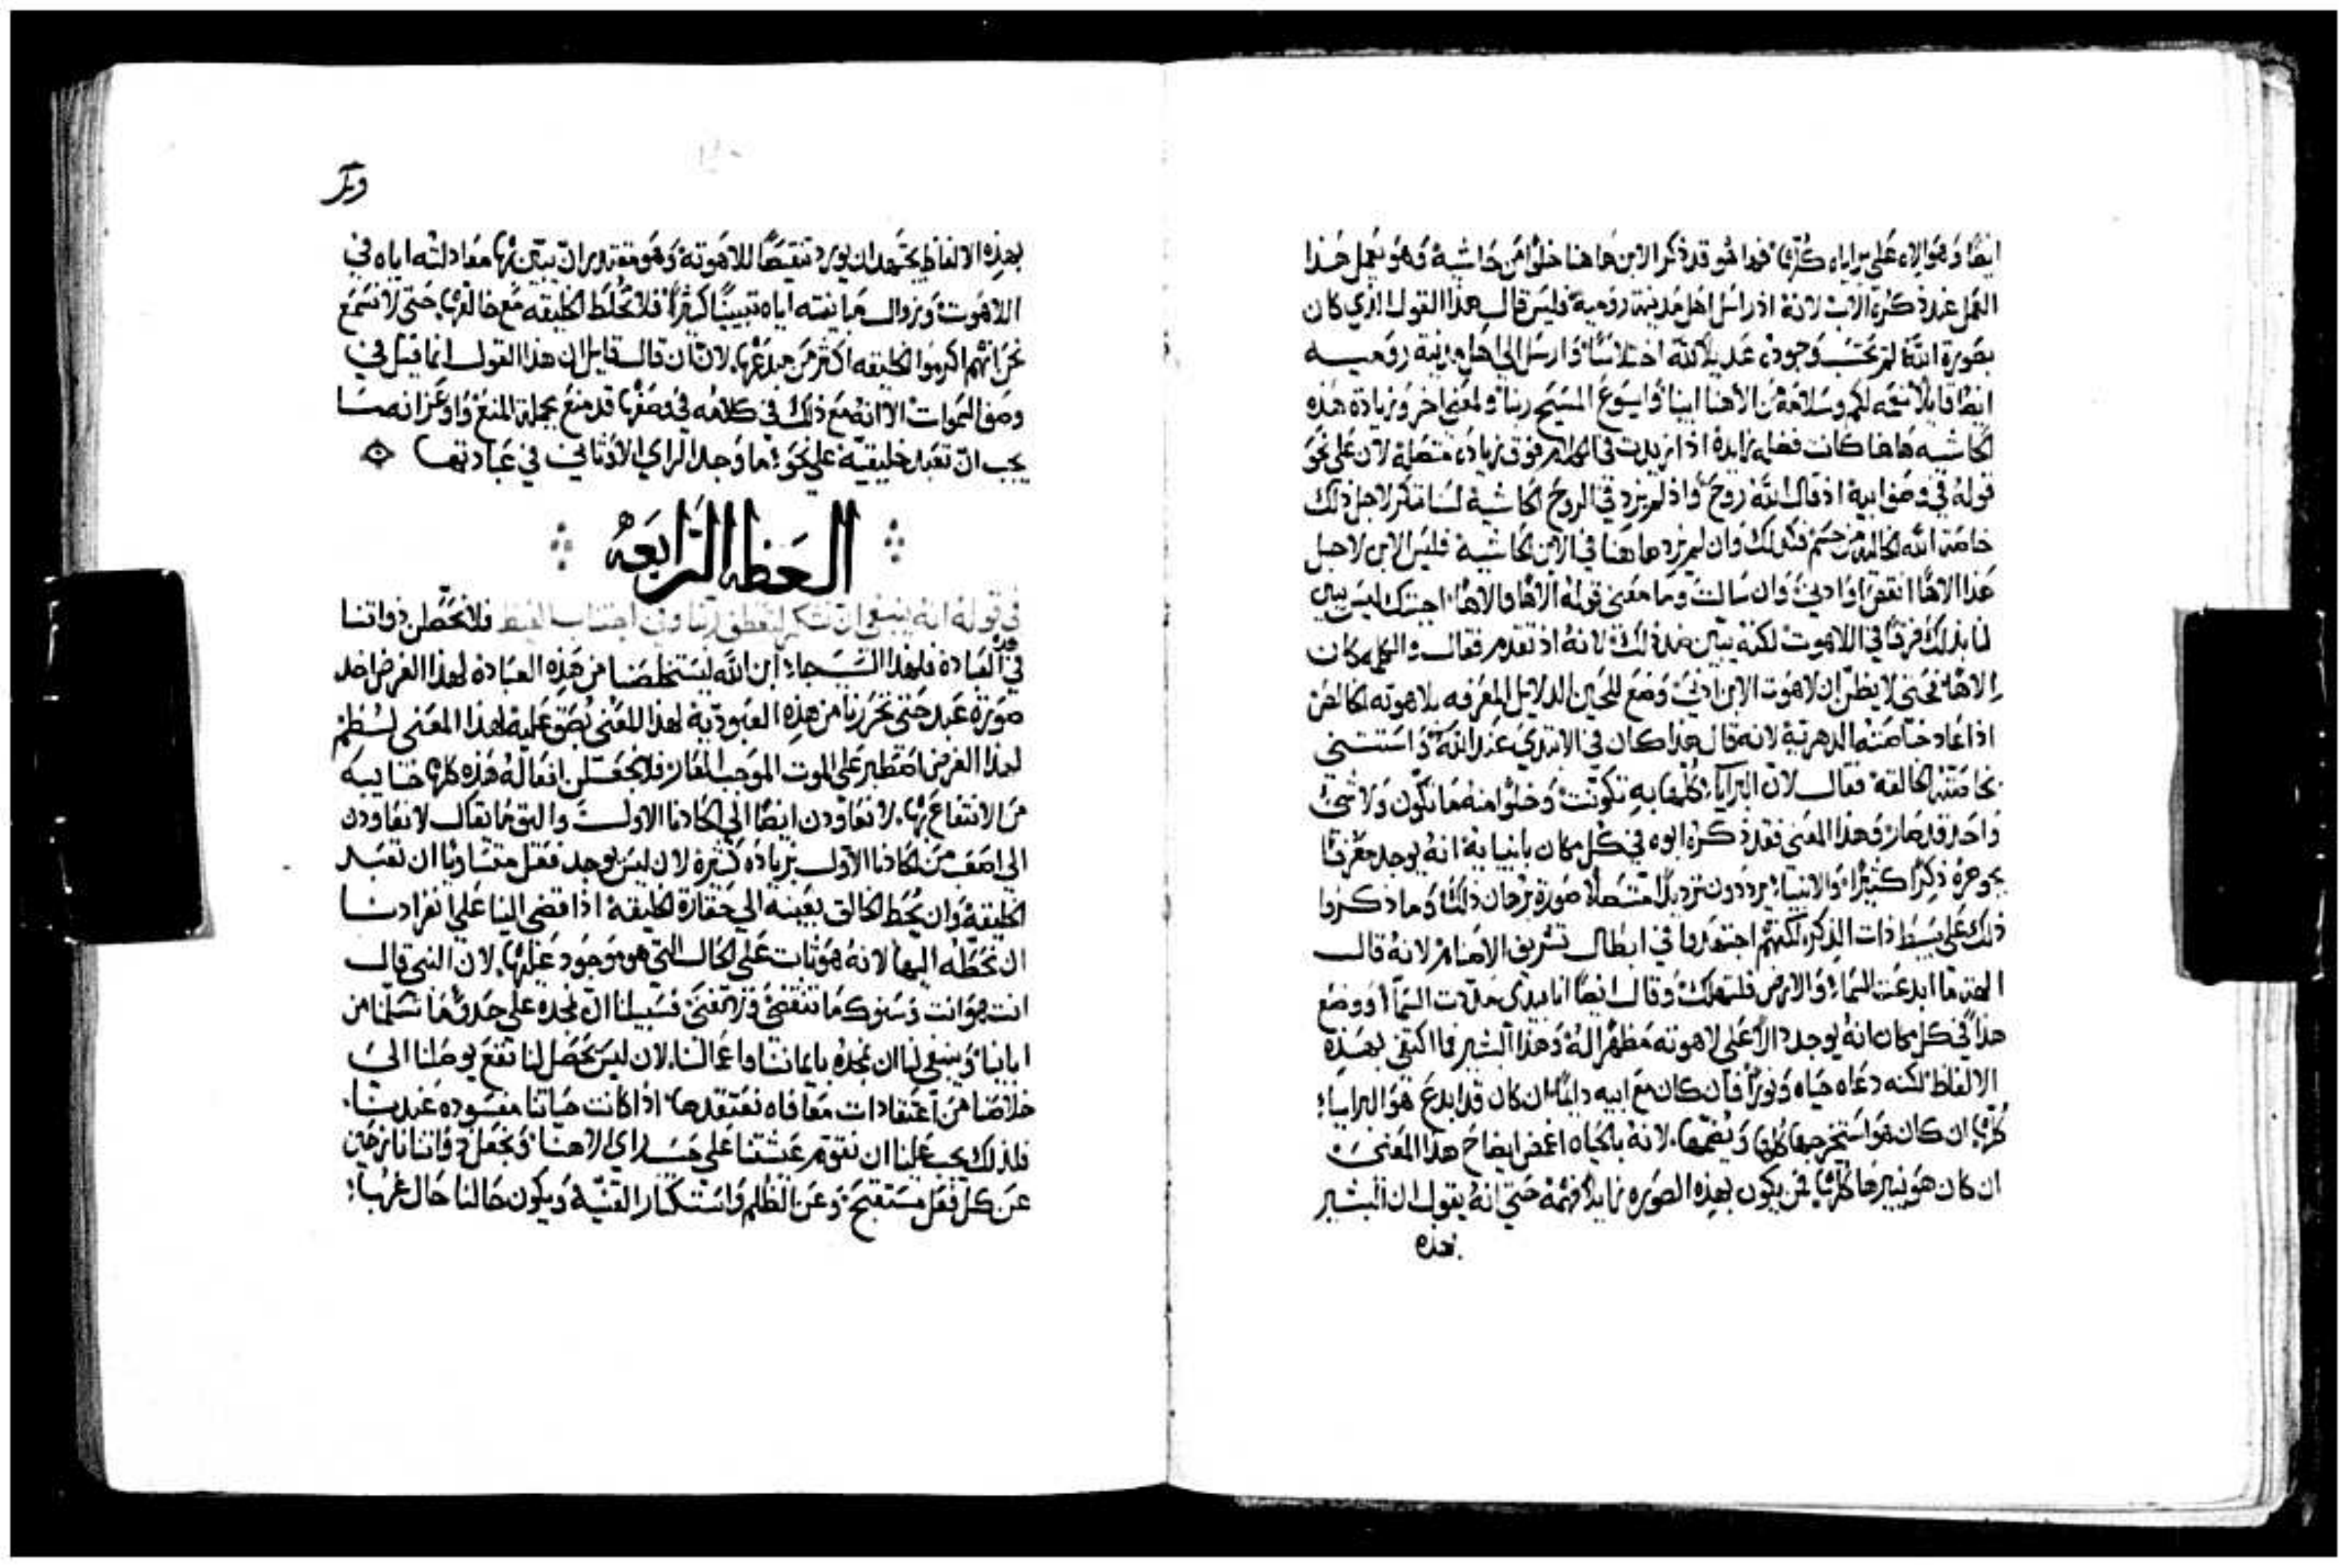 ايضًا وهولاء على براياه كلها فها هو قد ذكر الابن هاهنا خلوًا من حاشية وهو يعمل هذا
العمل عند ذكره الاب لانه اذ راسل اهل مدينة رومية فليس قال هذا القول الذي كان
بصورة الله لم يحتسب وجوده عديلًا لله اختلاسًا وارسل الى اهل مدينة رومية
ايضًا قايلًا نعمه لكم وسلامة من الاهنا ابينا وايسوع المسيح ربنا ولمعنى اخر وزيادة هذه
الحاشيه هاهنا كانت فضله زايدة اذا زيدت في الكلام فوق زيادة متصلة لان على نحو
قوله في وصف ابيه اذ قال الله روح واذ لم يزد في الروح الحاشية لسنا ننكر لاجل ذلك
خاصة الله الخالية من جسم فكذلك وان لم يزد هاهنا في الابن الحاشية فليس الابن لاجل
هذا الاهًا انقص او ادنى وان سالت وما معنى قوله الاهًا والاهًا اجبتك ليس يبين
لنا بذلك فرقًا في اللاهوت لكنه يبين ضد ذلك لانه اذ تقدم فقال والكلمه كان
الاهًا فحتى لا يظن ان لاهوت الابن ادنى وضع للحين الدلايل المعرفه بلاهوته الخالص
اذ اعاد خاصته الدهرية لانه قال هذا كان في الابتدي عند الله واستثنى
بخاصته الخالقة فقال لان البرايا كلها به تكونت وخلوًا منه ما تكون ولا شي
واحد قد صار وهذا المعنى فقد ذكره ابوه في كل مكان بانبيايه انه يوجد معرفًا
بجوهره ذكرًا كثيرًا والانبياء يرددون ترديدًا متصلًا صورة برهان ذلك وما ذكروا
ذلك على بسيط ذات الذكر لكنهم اجتهدوا في ابطال تشريف الاصنام لانه قال
الهة ما ابدعت السماء والارض فلتهلك وقال ايضًا انا بيدي مددت السما ووضع
هذا في كل مكان انه يوجد دالًا على لاهوته مظهرًا له وهذا البشير فما اكتفى بهذه
الالفاظ لكنه دعاه حياه ونورًا فان كان مع ابيه دايمًا ان كان قد ابدع هو البرايا
كلها ان كان هو استخرجها كلها ويضمها لانه بالحياه اغمض ايضاح هذا المعنى
ان كان هو ينيرها كلها فمن يكون بهذه الصوره زايلًا فهمه حتى انه يقول ان البشير
بهذه
بهذه الالفاظ يجتهد ان يورد تنقيصًا للاهوته وهو مقتدر ان يبين بها معادلته اياه في
اللاهوت وزوال مباينته اياه تبيينًا كثيرًا فلا نخلط الخليقه مع خالقها حتى لا نسمع
نحن انهم اكرموا الخليقه اكثر من مبدعها لان ان قال قايل ان هذا القول انما قيل في
وصف السموات الا انه مع ذلك في كلامه في وصفها قد منع بجملة المنع واوعز انه ما
يجب ان تعبد خليقية على نحو ما وجد الراي الاوثاني في عبادتها
العظه الرابعه
في قوله انه ينبغي ان نشكر لتعطف ربنا وفي اجتناب الغيظ فلا نحطن ذواتنا
في العبادة فلهذا السبب جاء ابن الله ليستخلصنا من هذه العبادة لهذا الغرض اخد
صورة عبد حتى تحررنا من هذه العبودية لهذا المعنى بصق عليه لهذا المعنى لطم
لهذا الغرض اصطبر على الموت الموجب العار فلا نجعلن افعاله هذه كلها خايبه
من الانتفاع بها لا نعاودن ايضًا الى الحادنا الاول واليق ما يقال لا نعاودن
الى اصعف من الحادنا الاول بزياده كثيرة لان ليس يوجد فعل متساويًا ان تعبد
الخليقة وان يحط الخالق بعينه الى حقارة الخليقة اذا افضى الينا على انفرادنا
ان نحطه اليها لانه هو ثابت على الحال التي هو موجود عليها لان النبي قال
انت هو انت وسنوك ما تنقضي ولا تفنى فسبيلنا ان نمجده على حذو ما تسلمنا من
ابابنا وينبغي لنا ان نمجده بايماننا واعمالنا لان ليس يحصل لنا نفع يوصلنا الى
خلاصنا من اعتقادات معافاه نعتقدها اذا كانت حياتنا مفسوده عندنا
فلذلك يجب علينا ان نقوم عيشتنا على حسب راي الاهنا ونجعل ذواتنا نازحين
عن كل فعل مستقبح وعن الظلم واستكثار القنية ويكون حالنا حال غربا